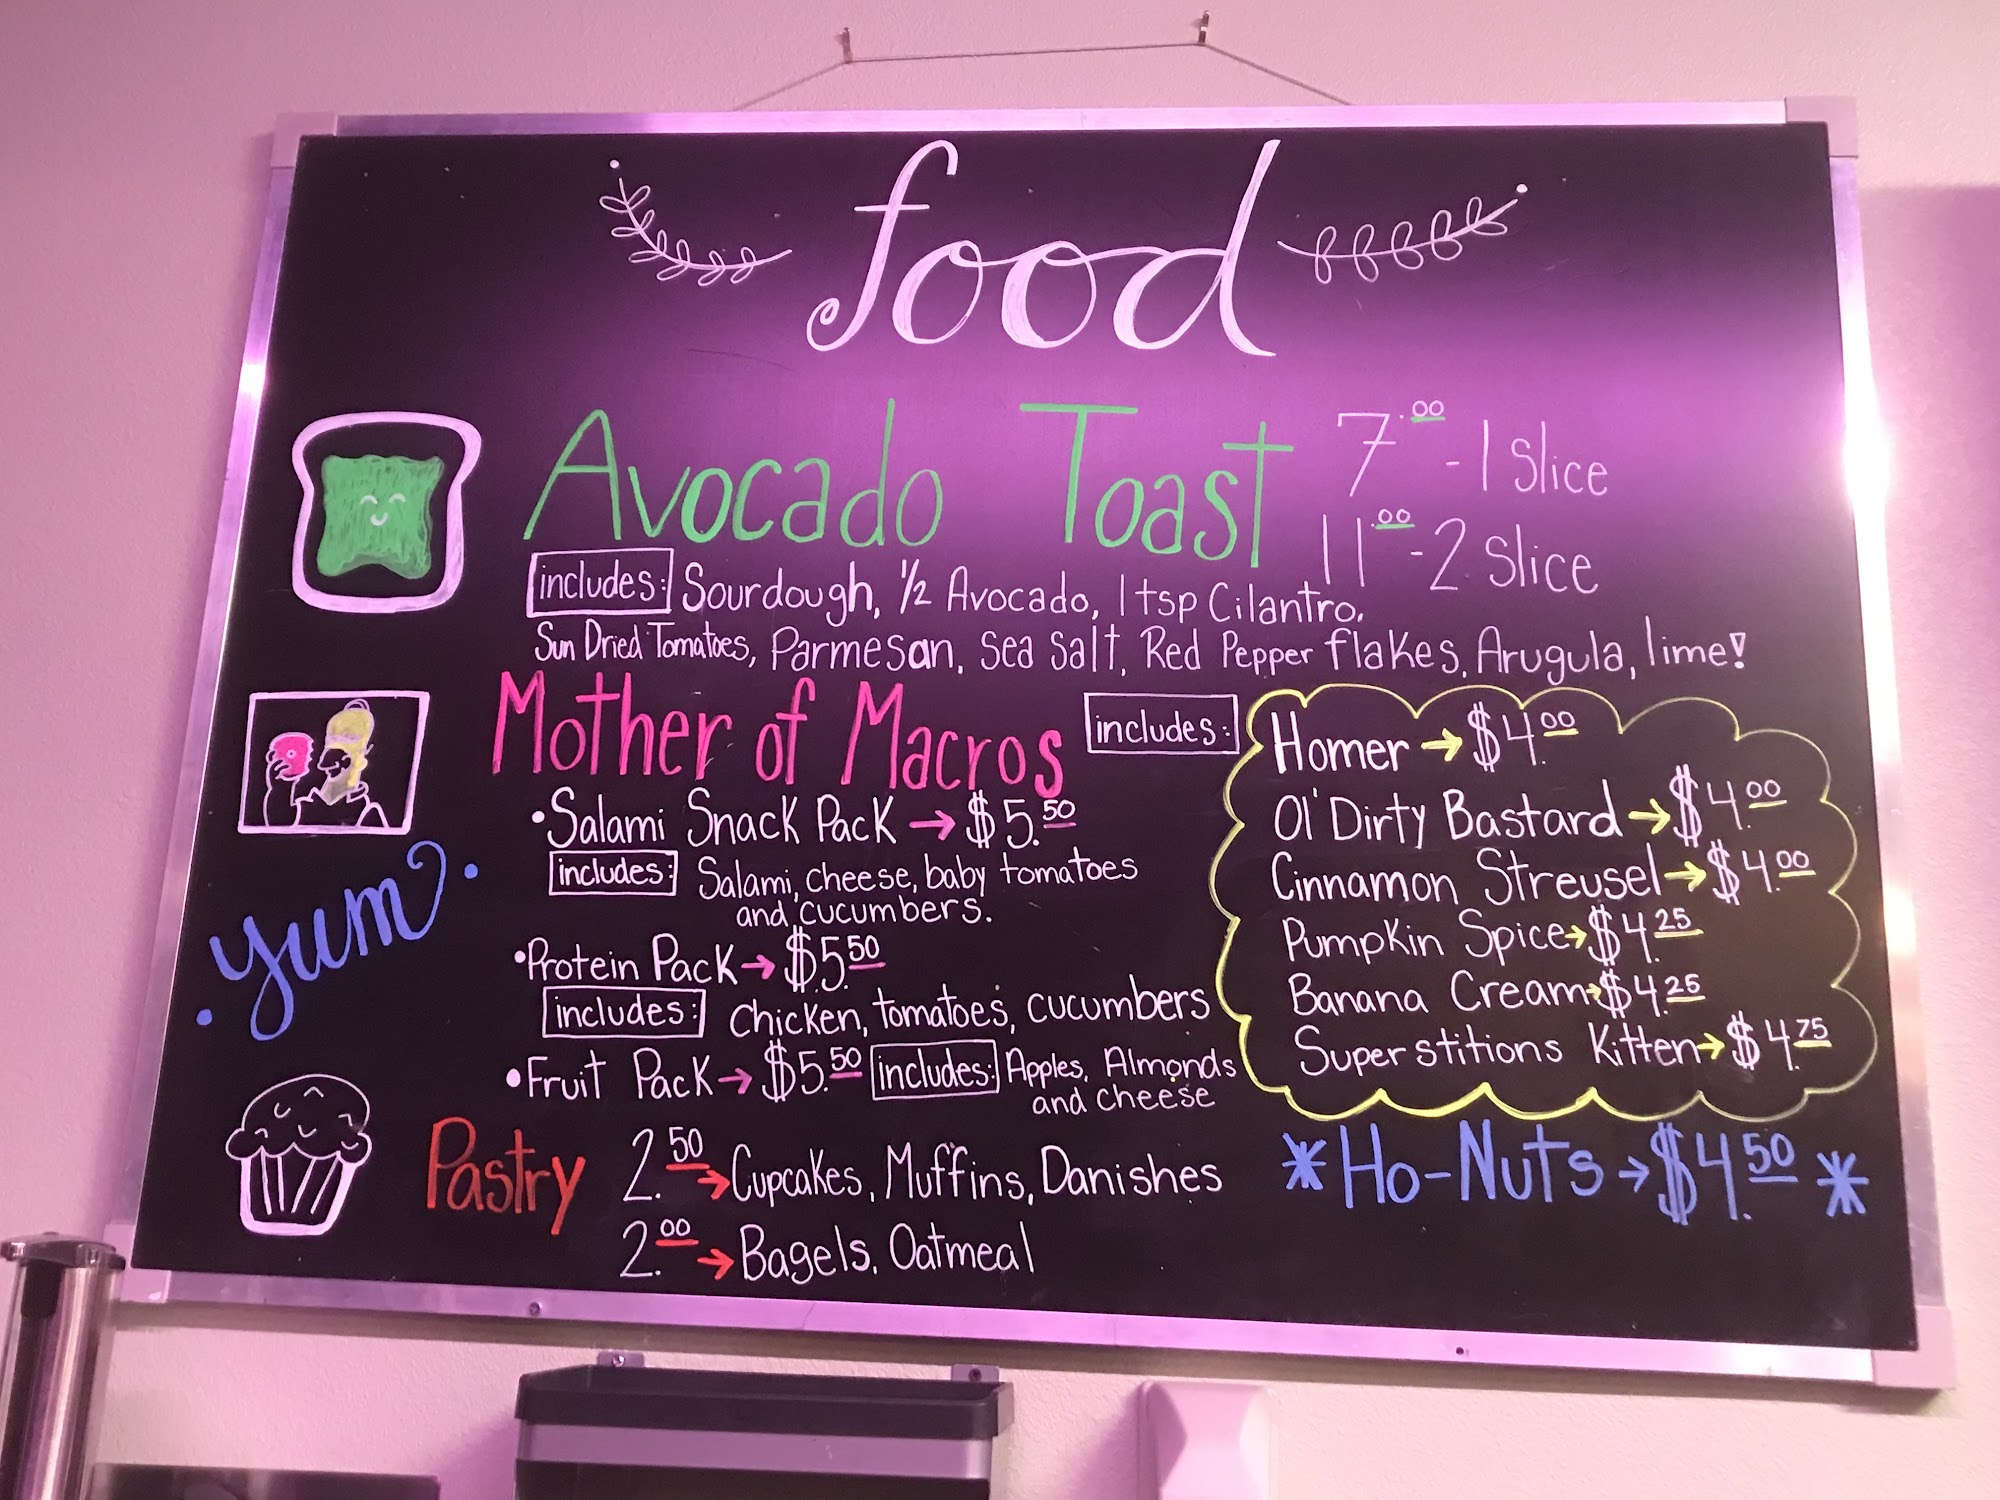 food
Avocado Toast 7.00 - 1 Slice
11.00 - 2 Slice
includes: Sourdough, 1/2 Avocado, 1 tsp Cilantro,
Sun Dried Tomatoes, Parmesan, Sea Salt, Red Pepper flakes, Arugula, lime!
Mother of Macros includes:
• Salami Snack Pack → $5.50
includes: Salami, cheese, baby tomatoes
and cucumbers.
• Protein Pack → $5.50
includes: Chicken, tomatoes, cucumbers
• Fruit Pack → $5.50 includes: Apples, Almonds
and cheese
Homer → $4.00
Ol' Dirty Bastard → $4.00
Cinnamon Streusel → $4.00
Pumpkin Spice → $4.25
Banana Cream → $4.25
Superstitions Kitten → $4.75
* Ho-Nuts → $4.50 *
yum
Pastry 2.50 → Cupcakes, Muffins, Danishes
2.00 → Bagels, Oatmeal